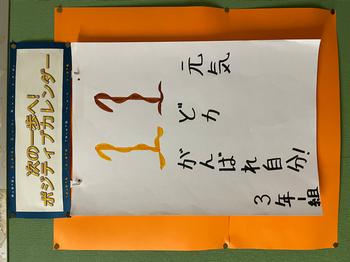 次の一歩へ!
ポジティブカレンダー
11
元気
ど力
がんばれ自分!
3年1組